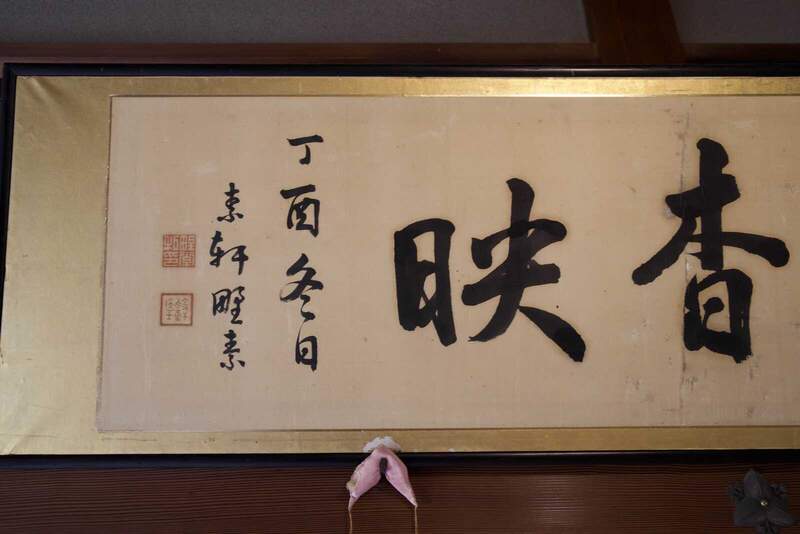 香映
丁酉冬日
素軒野素